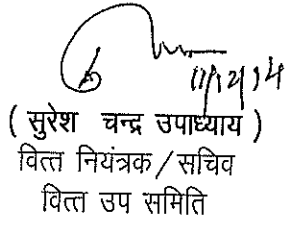 ( सुरेश चन्द्र उपाध्याय )
वित्त नियंत्रक/सचिव
वित्त उप समिति